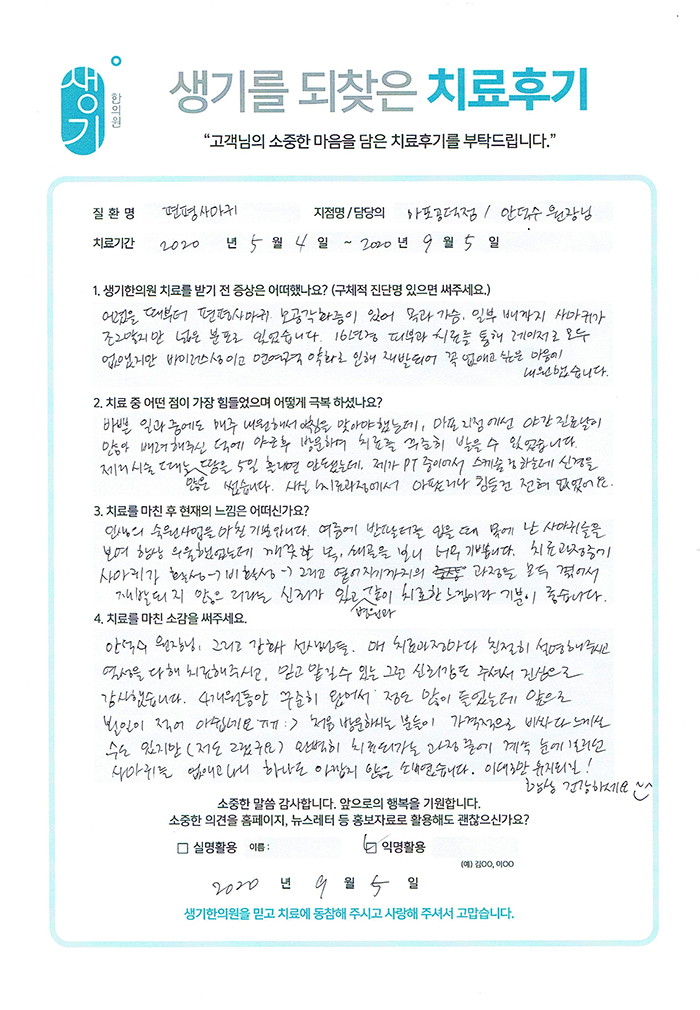 생기
한의원
생기를 되찾은 치료후기
“고객님의 소중한 마음을 담은 치료후기를 부탁드립니다.”
질 환 명 편평사마귀 지점명 / 담당의 마포공덕점 / 안덕수 원장님
치료기간 2020 년 5 월 4 일 ~ 2020 년 9 월 5 일
1. 생기한의원 치료를 받기 전 증상은 어떠했나요? (구체적 진단명 있으면 써주세요.)
어렸을 때부터 편평사마귀. 모공각화증이 있어 목과 가슴, 일부 배까지 사마귀가
조그맣지만 넓은 분포로 있었습니다. 16년경 피부과 치료를 통해 레이저로 모두
없앴지만 바이러스성이고 면역력 약화로 인해 재발되어 꼭 없애고 싶은 마음에
내원했습니다.
2. 치료 중 어떤 점이 가장 힘들었으며 어떻게 극복 하셨나요?
바쁜 일과 중에도 매주 내원해서 침을 맞아야했는데, 마포 지점에선 야간진료날이
많아 배려해주신 덕에 야근후 방문하며 치료를 꾸준히 받을 수 있었습니다.
제거시술 때는 많은 땀을 5일 흘리면 안됐는데. 제가 PT 중이어서 스케줄 정하는데 신경을
썼습니다. 사실 치료과정에서 아팠거나 힘든건 전혀 없었어요.
3. 치료를 마친 후 현재의 느낌은 어떠신가요?
인생의 숙원사업을 마친 기분입니다. 여름에 반팔티를 입을 때 목에 난 사마귀들을
보며 항상 우울했었는데 깨끗한 목, 쇄골을 보니 너무 기쁩니다. 치료과정중에
사마귀가 활성 -> 비활성 -> 그리고 옅어지기까지의 과정을 모두 겪어서
재발되지 않을 거라는 신뢰가 있고 병원과 같이 치료한 느낌이라 기분이 좋습니다.
4. 치료를 마친 소감을 써주세요.
안덕수 원장님, 그리고 간호 선생님들. 매 치료과정마다 친절히 설명해주시고
역성을 다해 치료해주시고, 믿고 맡길 수 있는 그런 신뢰감도 주셔서 진심으로
감사했습니다. 4개월동안 꾸준히 왔어서 정도 많이 들었는데 앞으로
볼일이 적어 아쉽네요ㅠㅠ :) 처음 방문하시는 분들이 가격적으로 비싸다 느끼실
수도 있지만 (저도 그랬구요) 완벽히 치료되가는 과정 중에 계속 눈에 걸리던
사마귀를 없애고나니 하나도 아깝지 않은 소비였습니다. 이대로만 유지되길!
항상 건강하세요 ^^
소중한 말씀 감사합니다. 앞으로의 행복을 기원합니다.
소중한 의견을 홈페이지, 뉴스레터 등 홍보자료로 활용해도 괜찮으신가요?
□ 실명활용 이름 : ☑ 익명활용
(예) 김OO, 이OO
2020 년 9 월 5 일
생기한의원을 믿고 치료에 동참해 주시고 사랑해 주셔서 고맙습니다.